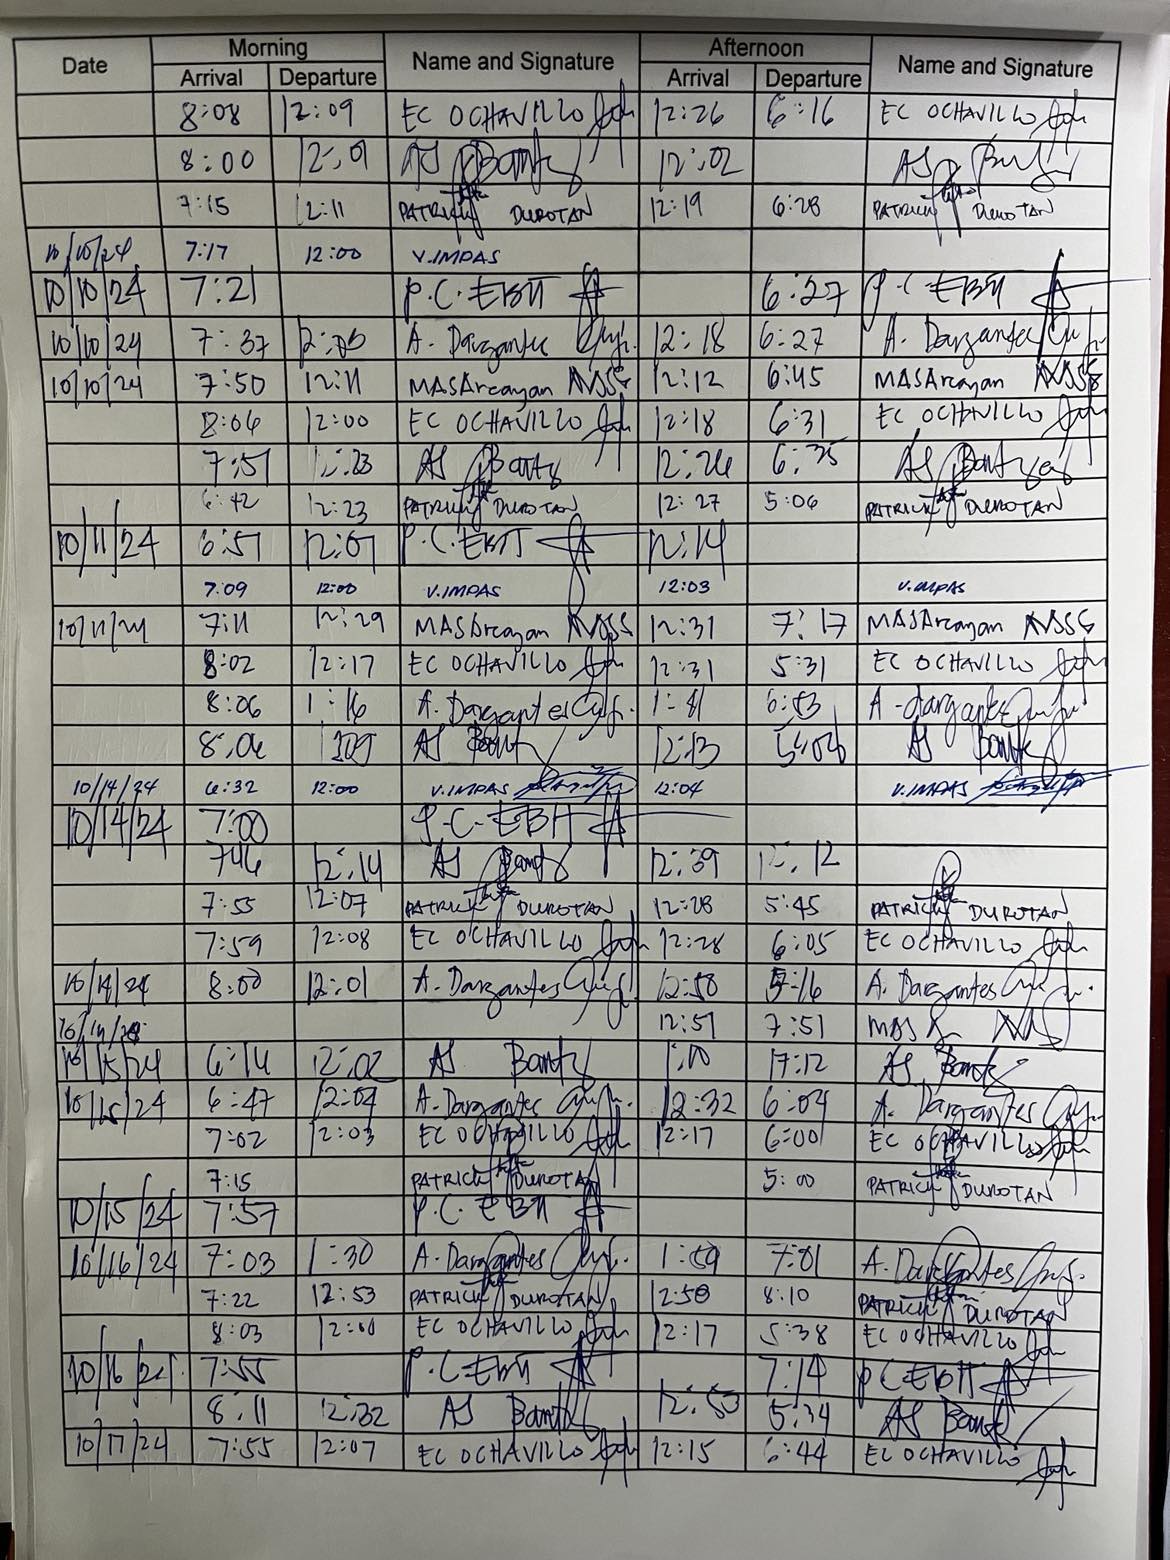 Date Morning Name and Signature Afternoon Name and Signature
Arrival Departure Arrival Departure
8:08 12:09 EC OCHAVILLO 12:26 6:16 EC OCHAVILLO
8:00 12:01 AS 12:02 AS
7:15 12:11 PATRICK DUROTAN 12:19 6:28 PATRICK DUROTAN
10/10/24 7:17 12:00 V.IMPAS
10/10/24 7:21 P.C.EBIT 6:27 P.C EBIT
10/10/24 7:37 A. Dargantes 12:18 6:27 A. Dargantes
10/10/24 7:50 12:11 MASArcayan 12:12 6:45 MASArcayan
8:06 12:00 EC OCHAVILLO 12:18 6:31 EC OCHAVILLO
7:51 12:23 AS 12:26 6:35 AS
6:42 12:23 PATRICK DUROTAN 12:27 5:06 PATRICK DUROTAN
10/11/24 6:51 12:01 P.C.EBIT 12:14
7:09 12:00 V.IMPAS 12:03 V.IMPAS
10/11/24 7:11 12:29 MASArcayan 12:31 7:17 MASArcayan
8:02 12:17 EC OCHAVILLO 12:31 5:31 EC OCHAVILLO
8:06 1:16 A. Dargantes A. Dargantes
8:06 AS 12:13 AS
10/14/24 6:32 12:00 V.IMPAS 12:04 V.IMPAS
10/14/24 7:00 P.C.EBIT
746 12:14 AS 12:39 12:12
7:55 12:07 PATRICK DUROTAN 12:28 5:45 PATRICK DUROTAN
7:59 12:08 EC OCHAVILLO 12:28 6:05 EC OCHAVILLO
10/14/24 8:00 12:01 A. Dargantes 12:58 A. Dargantes
12:51 7:51
10/15/24 6:14 12:02 AS 17:12 AS
10/15/24 6:47 12:04 A. Dargantes 12:32 6:04 A. Dargantes
7:02 12:03 EC OCHAVILLO 12:17 6:00 EC OCHAVILLO
7:15 PATRICK DUROTAN 5:00 PATRICK DUROTAN
10/15/24 7:57 P.C.EBIT
10/16/24 7:03 1:30 A. Dargantes 1:59 7:01 A. Dargantes
7:22 12:53 PATRICK DUROTAN 12:58 8:10 PATRICK DUROTAN
8:03 12:00 EC OCHAVILLO 12:17 5:38 EC OCHAVILLO
10/16/24 7:55 P.C.EBIT 7:14 P.C.EBIT
8:11 12:32 AS 12:53 5:34 AS
10/17/24 7:55 12:07 EC OCHAVILLO 12:15 6:44 EC OCHAVILLO